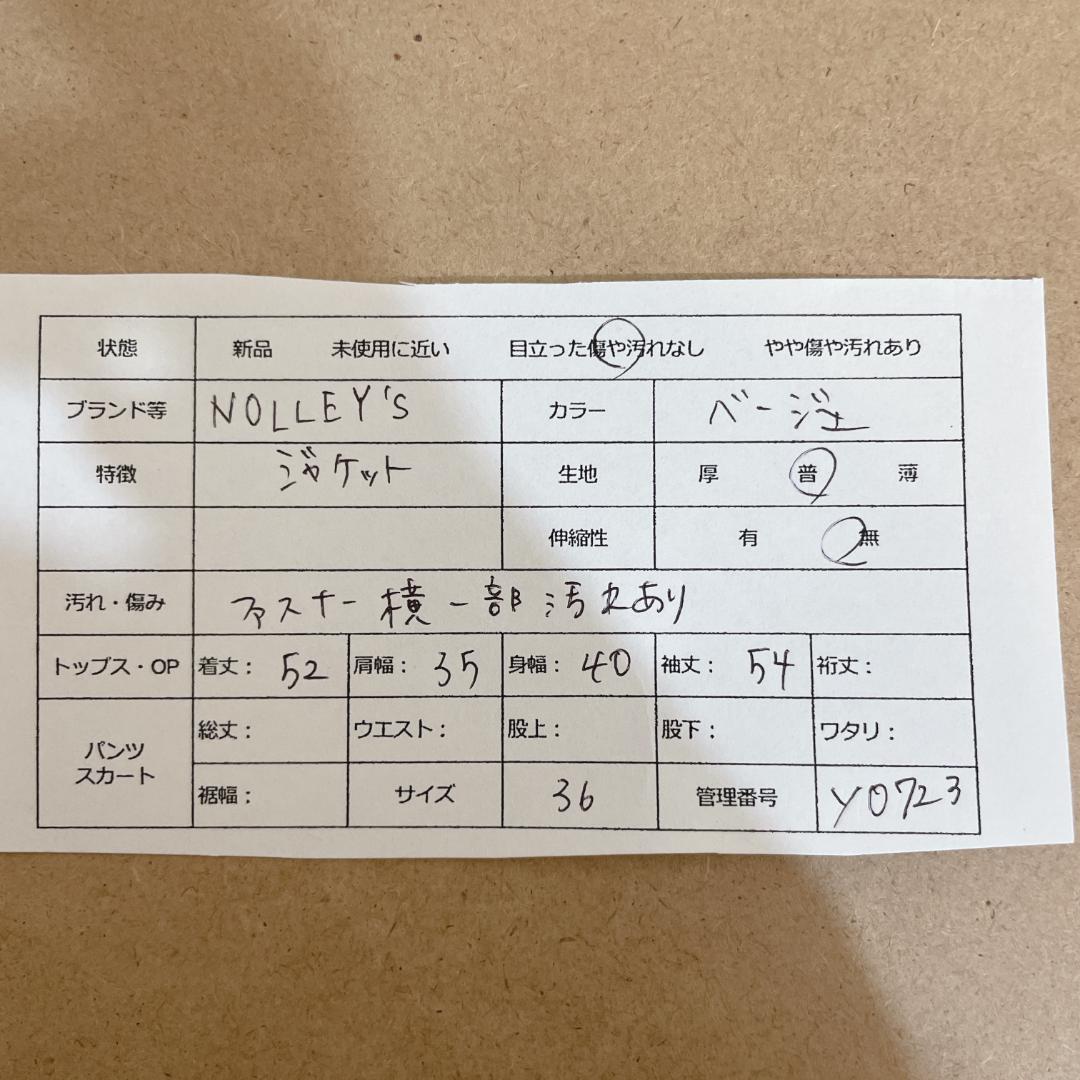 状態 新品 未使用に近い 目立った傷や汚れなし やや傷や汚れあり
ブランド等 NOLLEY'S カラー ベージュ
特徴 ジャケット 生地 厚 普 薄
伸縮性 有 無
汚れ・傷み ファスナー横一部汚れあり
トップス・OP 着丈: 52 肩幅: 35 身幅: 40 袖丈: 54 裄丈:
パンツ
スカート
総丈: ウエスト: 股上: 股下: ワタリ:
裾幅: サイズ 36 管理番号 Y0723